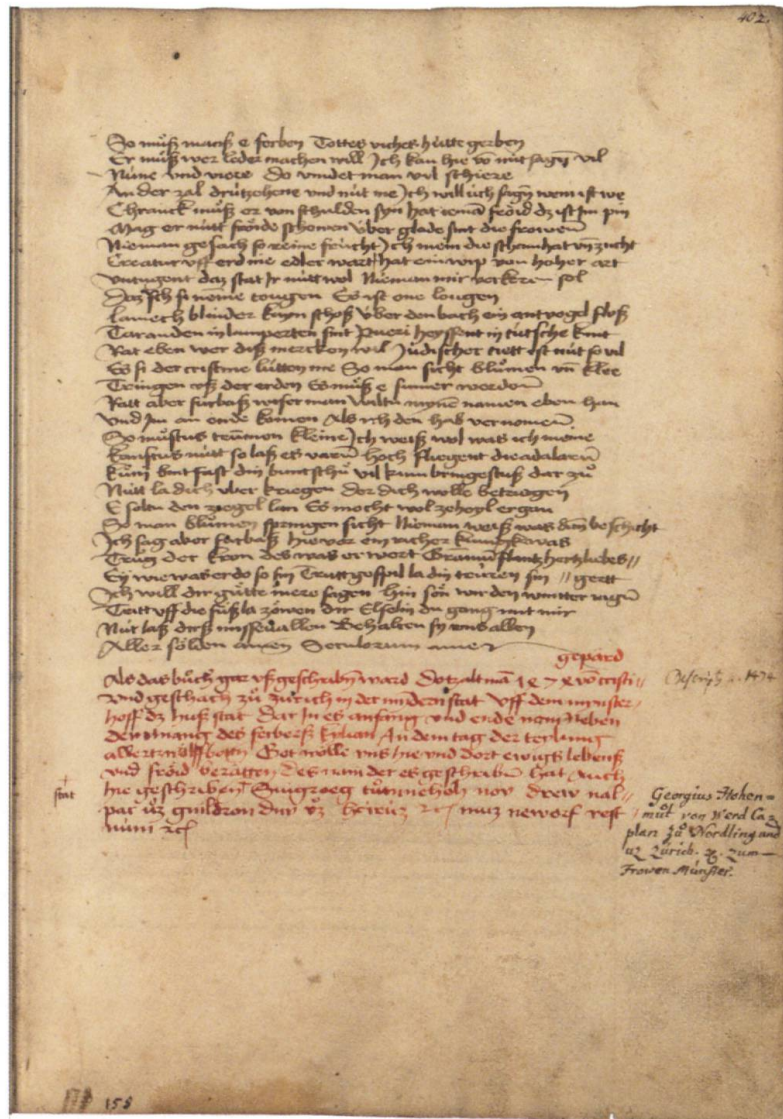 402.
So můß manß e ferben Tottes viches hütte gerben
Er můß wer leder machen will Ich kan hie võ nüt sagñ vil
Nüne vnd viere do vindet man vil schiere
An der zal drützehene vnd nüt me Ich will üch sagñ wem ist we
Chranck můß er von schulden syn hat fröid dz ist Im pin
Mag er nütt frönde schowen Vber glade sint die frowen
Nieman gesach so reine frücht Ich mein die scham hat vñ zucht
Creatur vff erd nie edler wart hat ein wip von hoher art
vntugent daz stat Ir nütt wol Nieman mir verkeren sol
Daz Ich si neme tougen Es ist one lougen
Lamech blinder kayn schoß Vber den bach ein antvogel floß
in lamparten sint Pueri heyssent in tütsche kint
Rat eben wer diß mercken wil Jüdischer ist nüt so vil
Es si der cristine lütten me So man sicht blůmen vñ klee
Tringen vß der erden Es můß e sumer werden
Ratt aber fürbaß wiser man wiltu mynē namen eben han
Vnd Im an ende komen Als ich den hab vernomen
So můstus kleine Ich weiß wol was ich meine
Kanstus nütt so laß es varen hoch fliegent die adalaren
kum din buntschů vil kum bringestuß dar zů
Nütt la dich vber kriegen der dich wolle betriegen
E soltu den zoegel lan Es mocht wol ergan
So man blůmen springen sicht Nieman weiß was dañ beschicht
Ich sag aber fürbaß hie vor ein richer küning was
Trůg der kron des was er wert hertzliebes //
Ey wie was er do so sin Trutt gespil la din truren sin // gert
Ich will dir gůtte mere sagen hin sön wir den winter iagñ
Tritt vff die füß la zöwen dir Elselin du gang mit mir
Nüt laß dirß missevallen Behalten sy vns allen
Aller sölden amen Seculorum amen
gepård
Als das bůch gar vß geschribñ ward Do zalt mã võ cristi
vnd geschach zů zürich in der mindern stat Vff dem mynster
hoff dz huß stat Dar In es anfang vnd ende nam Neben
dem des ferbers kilian An dem tag der teilung
Got wölle vns hie vnd dort ewigs lebenß
vnd fröid beratten Des nam der es geschriben hat Auch
stat
hie geschriben Snigroeg tümnehoh nov drew nal //
pac vz gnildron dnv vz hcirüz rc muz neworf rest //
num rc
1474
Georgius Hohen=
můt von Werd Ca=
plan zů Nördling and
uz Zürich. zc. zum
Frowen Münster.
158